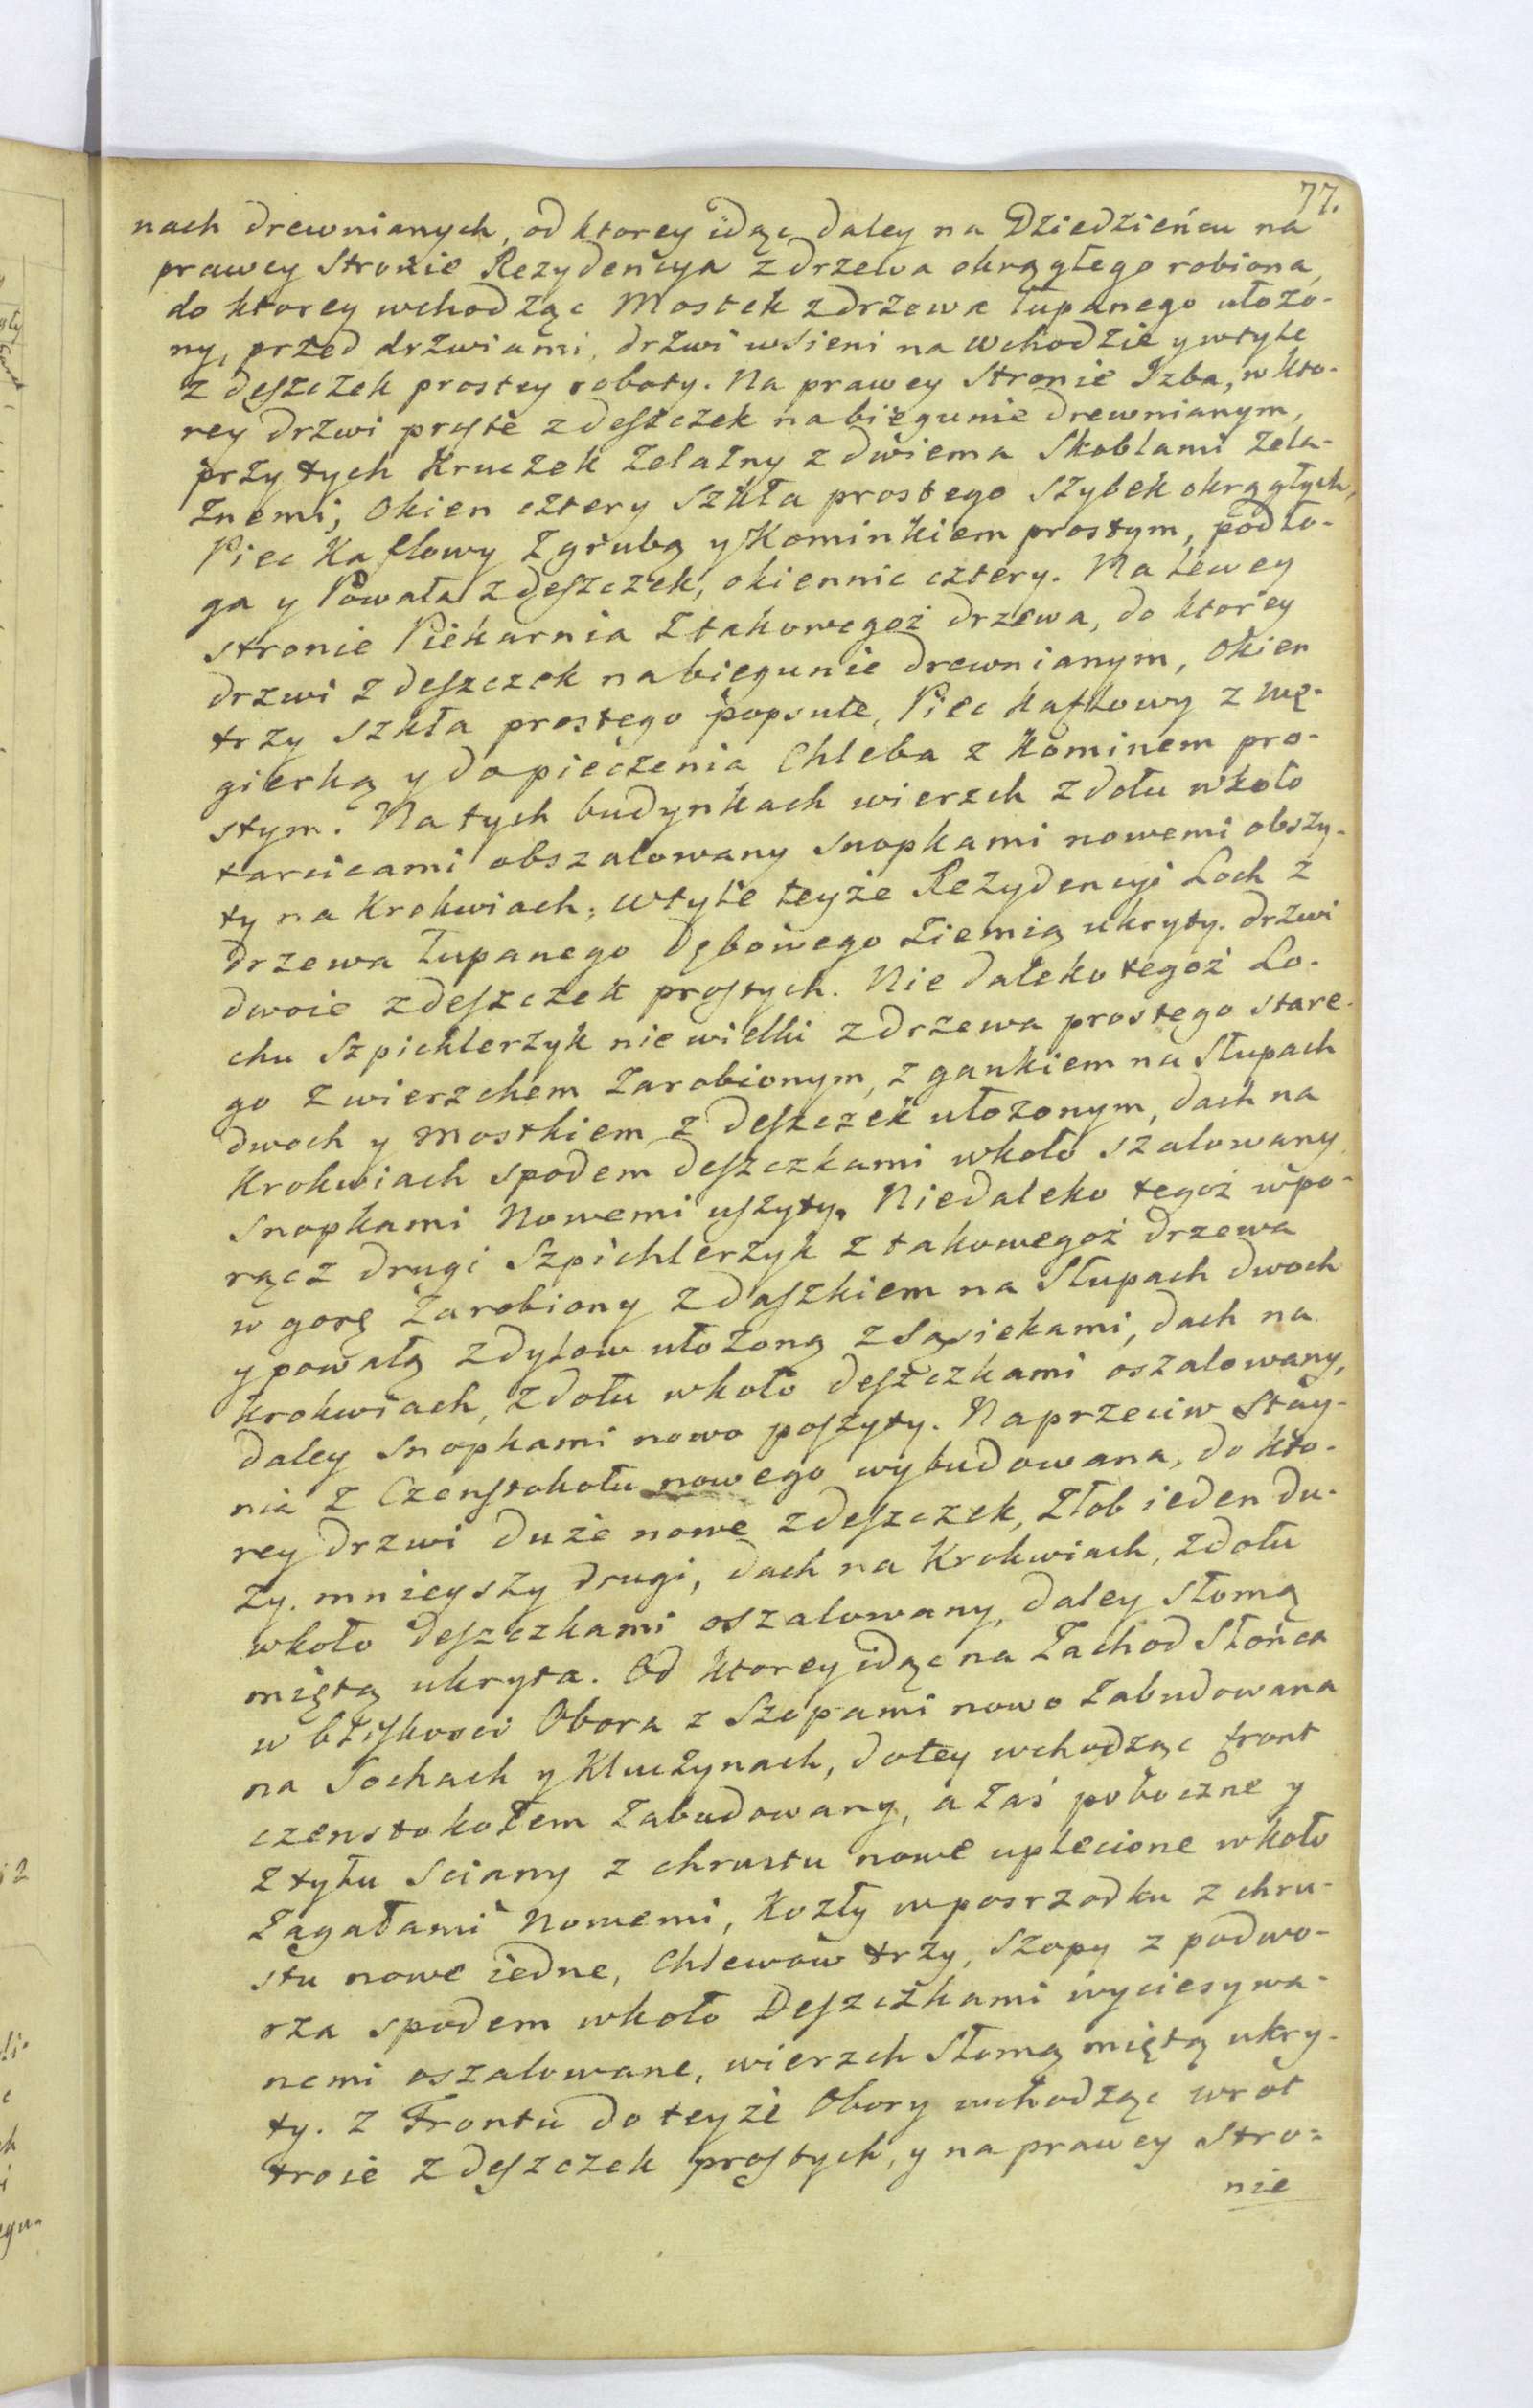 77.
nach drewnianych, od ktorey idąc daley na Dziedzieńcu na
prawey Stronie Rezydencya z drzewa okrągłego robiona,
do ktorey wchodząc Mostek z drzewa łupanego ułożo-
ny, przed drzwiami, drzwi w Sieni na wchodzie y wtyle
z deszczek prostey roboty. Na prawey Stronie Izba, w kto-
rey drzwi proste z deszczek na biegunie drewnianym,
przy tych Kruczek żelazny z dwiema Skoblami żela-
znemi, Okien cztery szkła prostego szybek okrągłych,
Piec Kaflowy z grubą y Kominkiem prostym, podło-
ga y Powała z deszczek, okiennic cztery. Na lewey
stronie Piekarnia z takowegoż drzewa, do ktorey
drzwi z deszczek na biegunie drewnianym, Okien
trzy szkła prostego popsute, Piec kaflowy z wę-
gierką y do pieczenia Chleba z Kominem pro-
stym. Na tych budynkach wierzch z dołu wkoło
tarcicami obszalowany snopkami nowemi obszy-
ty na Krokwiach, wtyle teyże Rezydencyi Loch z
drzewa łupanego dębowego ziemią ukryty. drzwi
dwoie z deszczek prostych. Nie daleko tegoż Lo-
chu Szpichlerzyk nie wielki z drzewa prostego stare-
go z wierzchem zarobionym, z gankiem na Słupach
dwoch y mostkiem z deszczek ułożonym, dach na
Krokwiach spodem deszczkami wkoło szalowany
snopkami Nowemi uszyty. Niedaleko tegoż wpo-
rącz drugi Szpichlerzyk z takowegoż drzewa
w gorę zarobiony z daszkiem na Słupach dwoch
y powałą z dylow ułożoną z Sąsiekami, dach na
krokwiach, z dołu wkoło deszczkami oszalowany,
daley Snopkami nowo poszyty. Naprzeciw Stay-
nia z Czenstokołu nowego wybudowana, do kto-
rey drzwi duże nowe z deszczek, żłob ieden du-
ży. mnieyszy drugi, dach na Krokwiach, z dołu
wkoło deszczkami oszalowany, daley słomą
miętą ukryta. Od ktorey idąc na Zachod Słońca
w bliskosci Obora z Szopami nowo zabudowana
na Sochach y Kluczynach, doley wchodząc front
czenstokołem zabudowany, a zaś poboczne y
z tyłu sciany z chrustu nowe uplecione wkoło
zagatami Nowemi, Kozły wposrzodku z chru-
stu nowe iedne, Chlewow trzy, szopy z podwo-
rza spodem wkoło Deszczkami wyciesywa-
nemi oszalowane, wierzch Słomą miętą ukry-
ty. z Frontu do teyże Obory wchodząc wrot
troie z deszczek prostych, y na prawey Stro=
nie